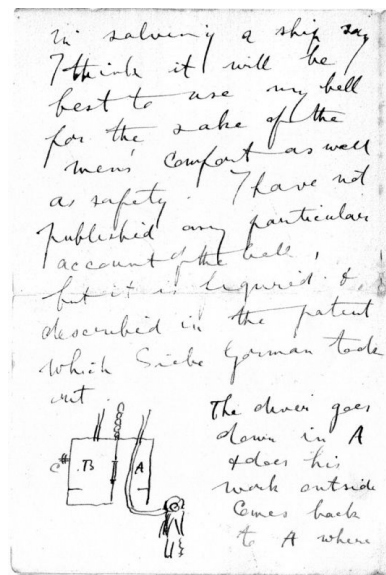 in salving a ship say
I think it will be
best to use my bell
for the sake of the
men's comfort as well
as safety. I have not
published any particular
account of the bell,
but it is figured &
described in the patent
which Siebe Gorman took
out.
B A
The diver goes
down in A
& does his
work outside
Comes back
to A where